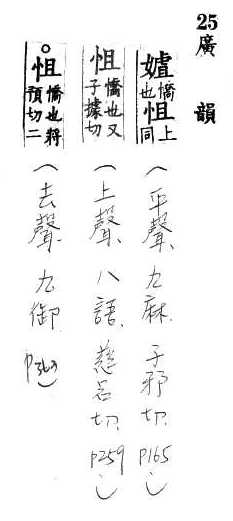 25 廣韻
㜘憍也怚上同(平聲、九麻、子邪切、P165)
怚憍也又子據切(上聲、八語、慈呂切、P259)
怚憍也將預切二(去聲、九御、P363)